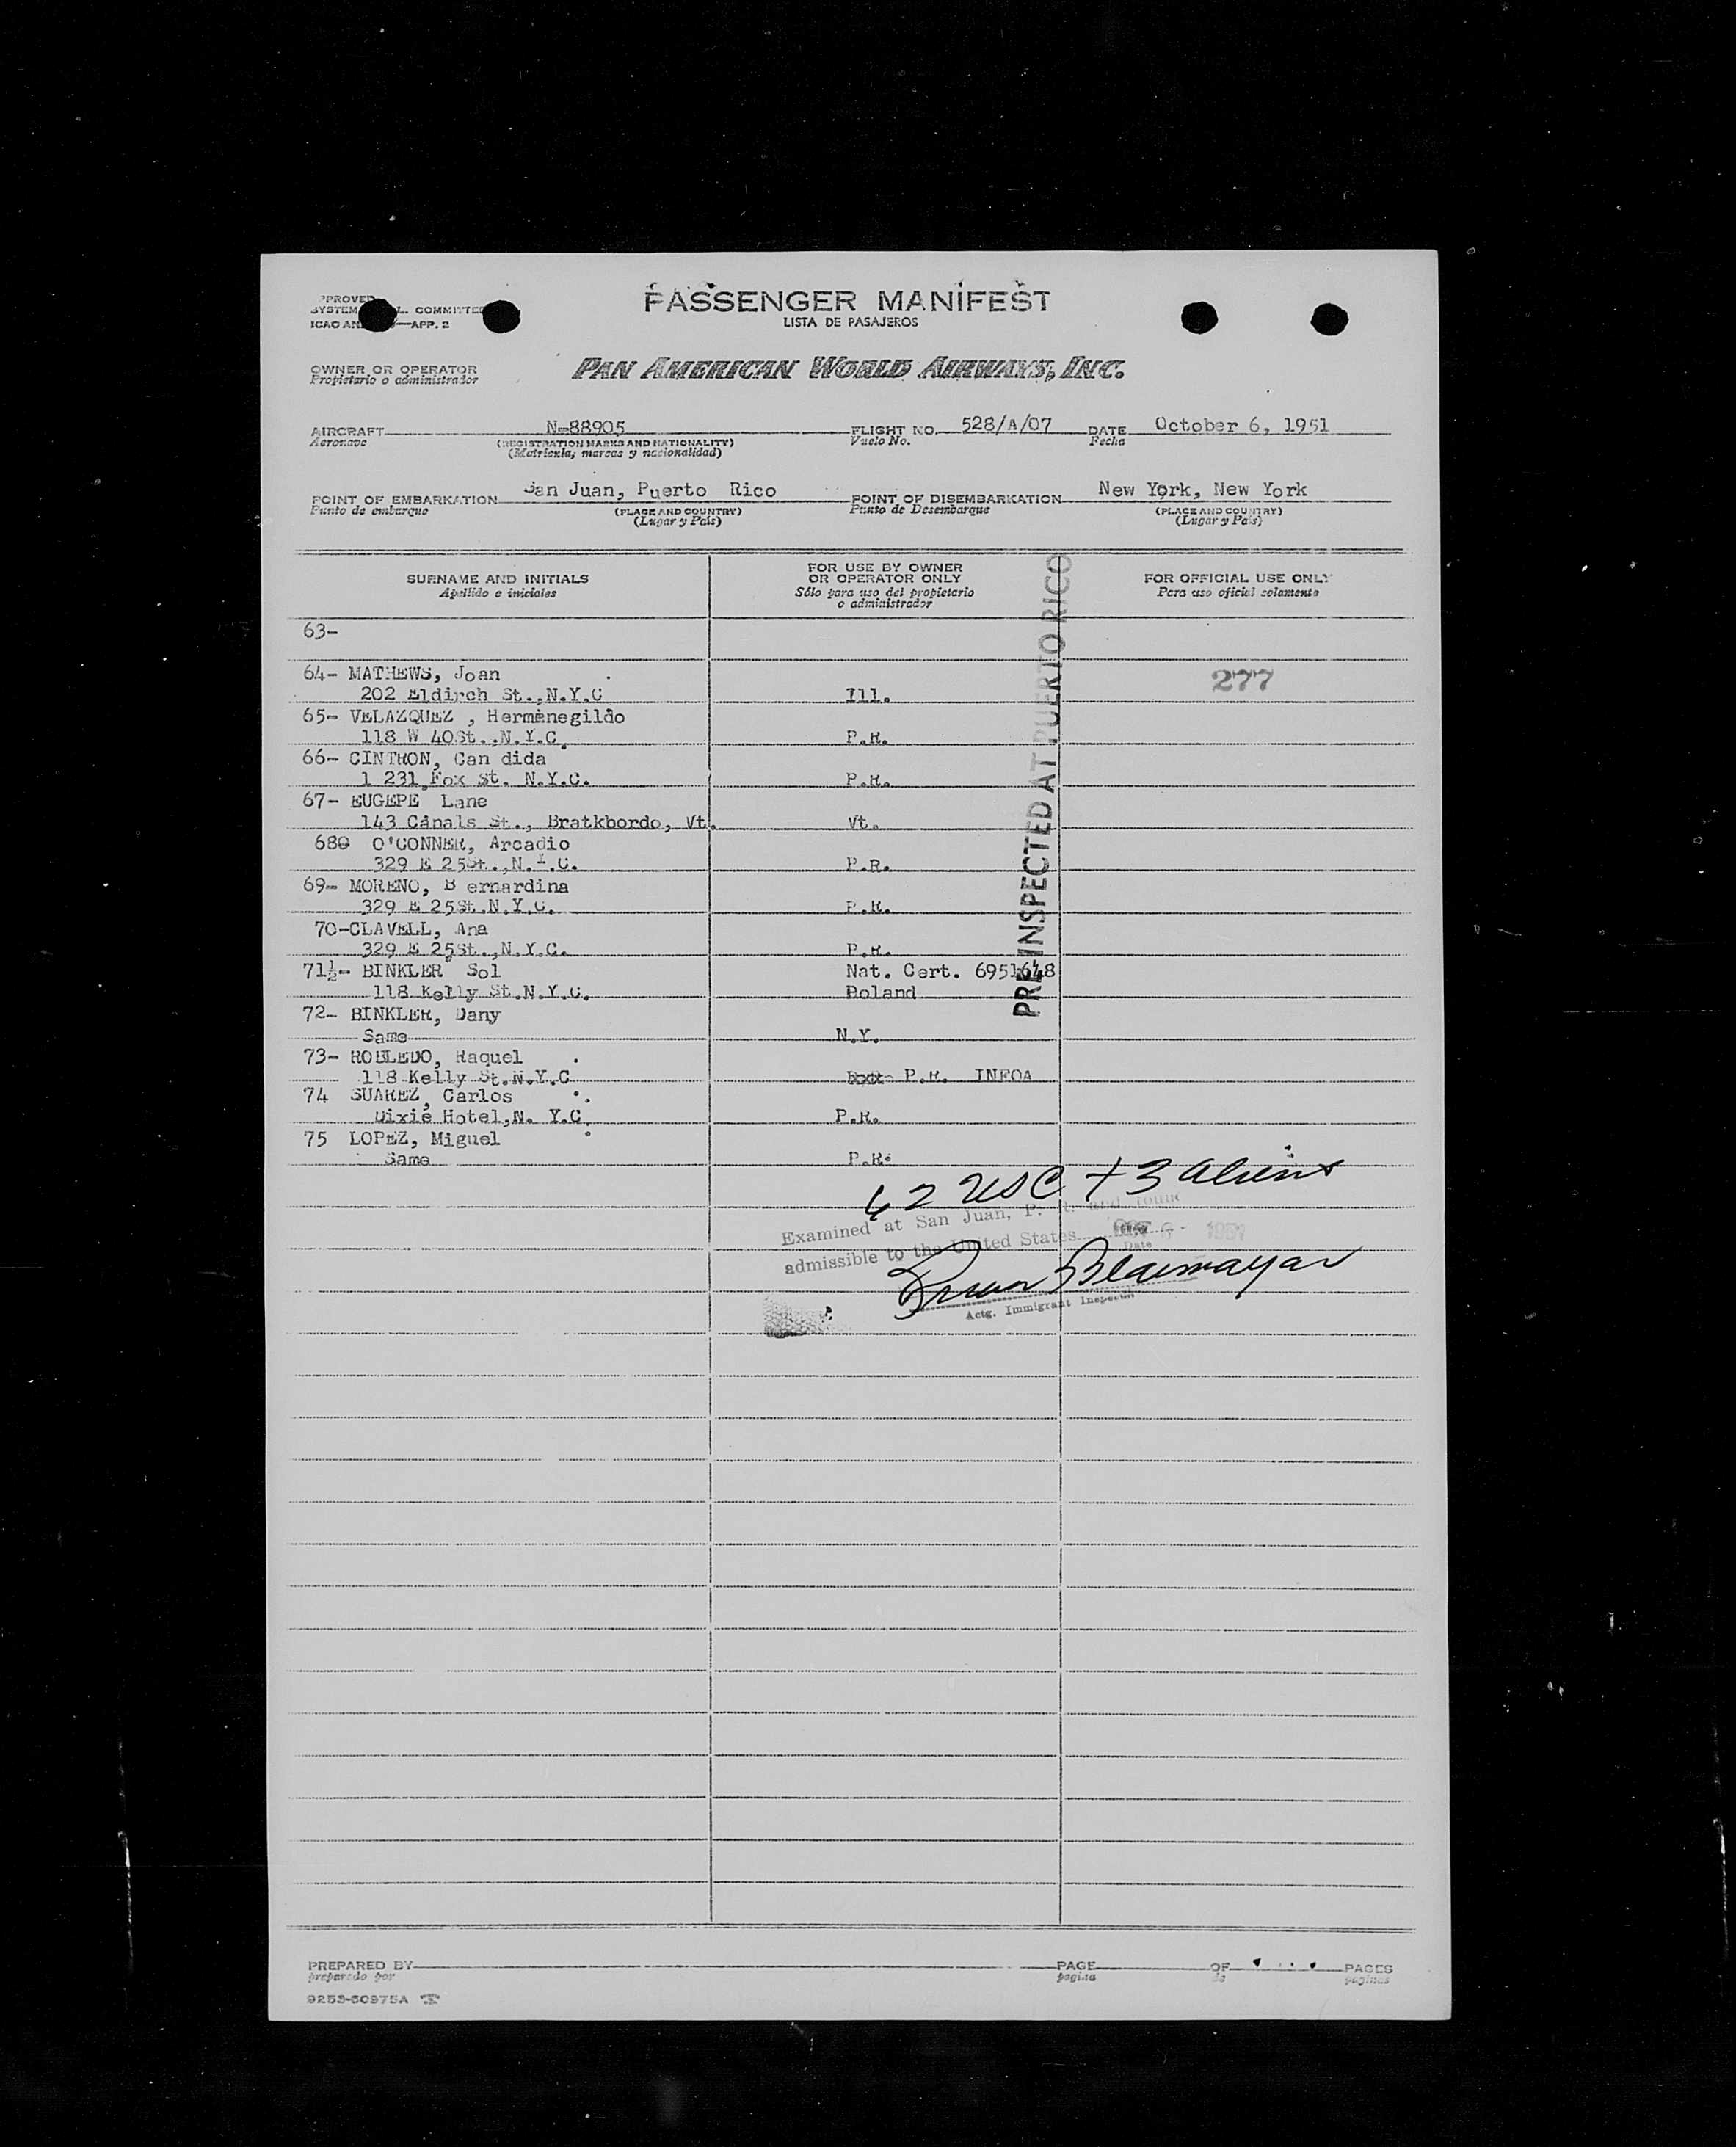 PASSENGER MANIFEST
LISTA DE PASAJEROS
COMMITTEE
ICAO APP. 2
OWNER OR OPERATOR
Propietario o administrador
PAN AMERICAN WORLD AIRWAYS, INC.
AIRCRAFT N-88905 FLIGHT NO. 528/A/07 DATE October 6, 1951
Aeronave (REGISTRATION MARKS AND NATIONALITY) Vuelo No. Fecha
(Matrícula, marcas y nacionalidad)
POINT OF EMBARKATION San Juan, Puerto Rico POINT OF DISEMBARKATION New York, New York
Punto de embarque (PLACE AND COUNTRY) Punto de Desembarque (PLACE AND COUNTRY)
(Lugar y País) (Lugar y País)
SURNAME AND INITIALS
Apellido e iniciales
FOR USE BY OWNER
OR OPERATOR ONLY
Sólo para uso del propietario
o administrador
FOR OFFICIAL USE ONLY
Para uso oficial solamente
PRE INSPECTED AT PUERTO RICO
63-
64- MATHEWS, Joan 277
202 Eldirch St.,N.Y.C Ill.
65- VELAZQUEZ , Hermenegildo
118 W 40St.,N.Y.C. P.R.
66- CINTRON, Can dida
1 231 Fox St. N.Y.C. P.R.
67- EUGEPE Lane
143 Canals St., Bratkbordo, Vt. Vt.
680 O'CONNER, Arcadio
329 E 25St.,N.Y.C. P.R.
69- MORENO, B ernardina
329 E 25St.N.Y.C. P.R.
70-CLAVELL, Ana
329 E 25St.,N.Y.C. P.R.
71½- BINKLER Sol Nat. Cert. 6951648
118 Kelly St.N.Y.C. Poland
72- BINKLER, Dany
Same N.Y.
73- ROBLEDO, Raquel
118 Kelly St.N.Y.C P.R. INFOA
74 SUAREZ, Carlos
Dixie Hotel,N. Y.C. P.R.
75 LOPEZ, Miguel
Same P.R.
62 USC + 3 aliens
Examined at San Juan, P. R. and found
admissible to the United States OCT 6 - 1951
Date
Actg. Immigrant Inspector
PREPARED BY PAGE OF PAGES
preparado por pagina de páginas
9253-60975A